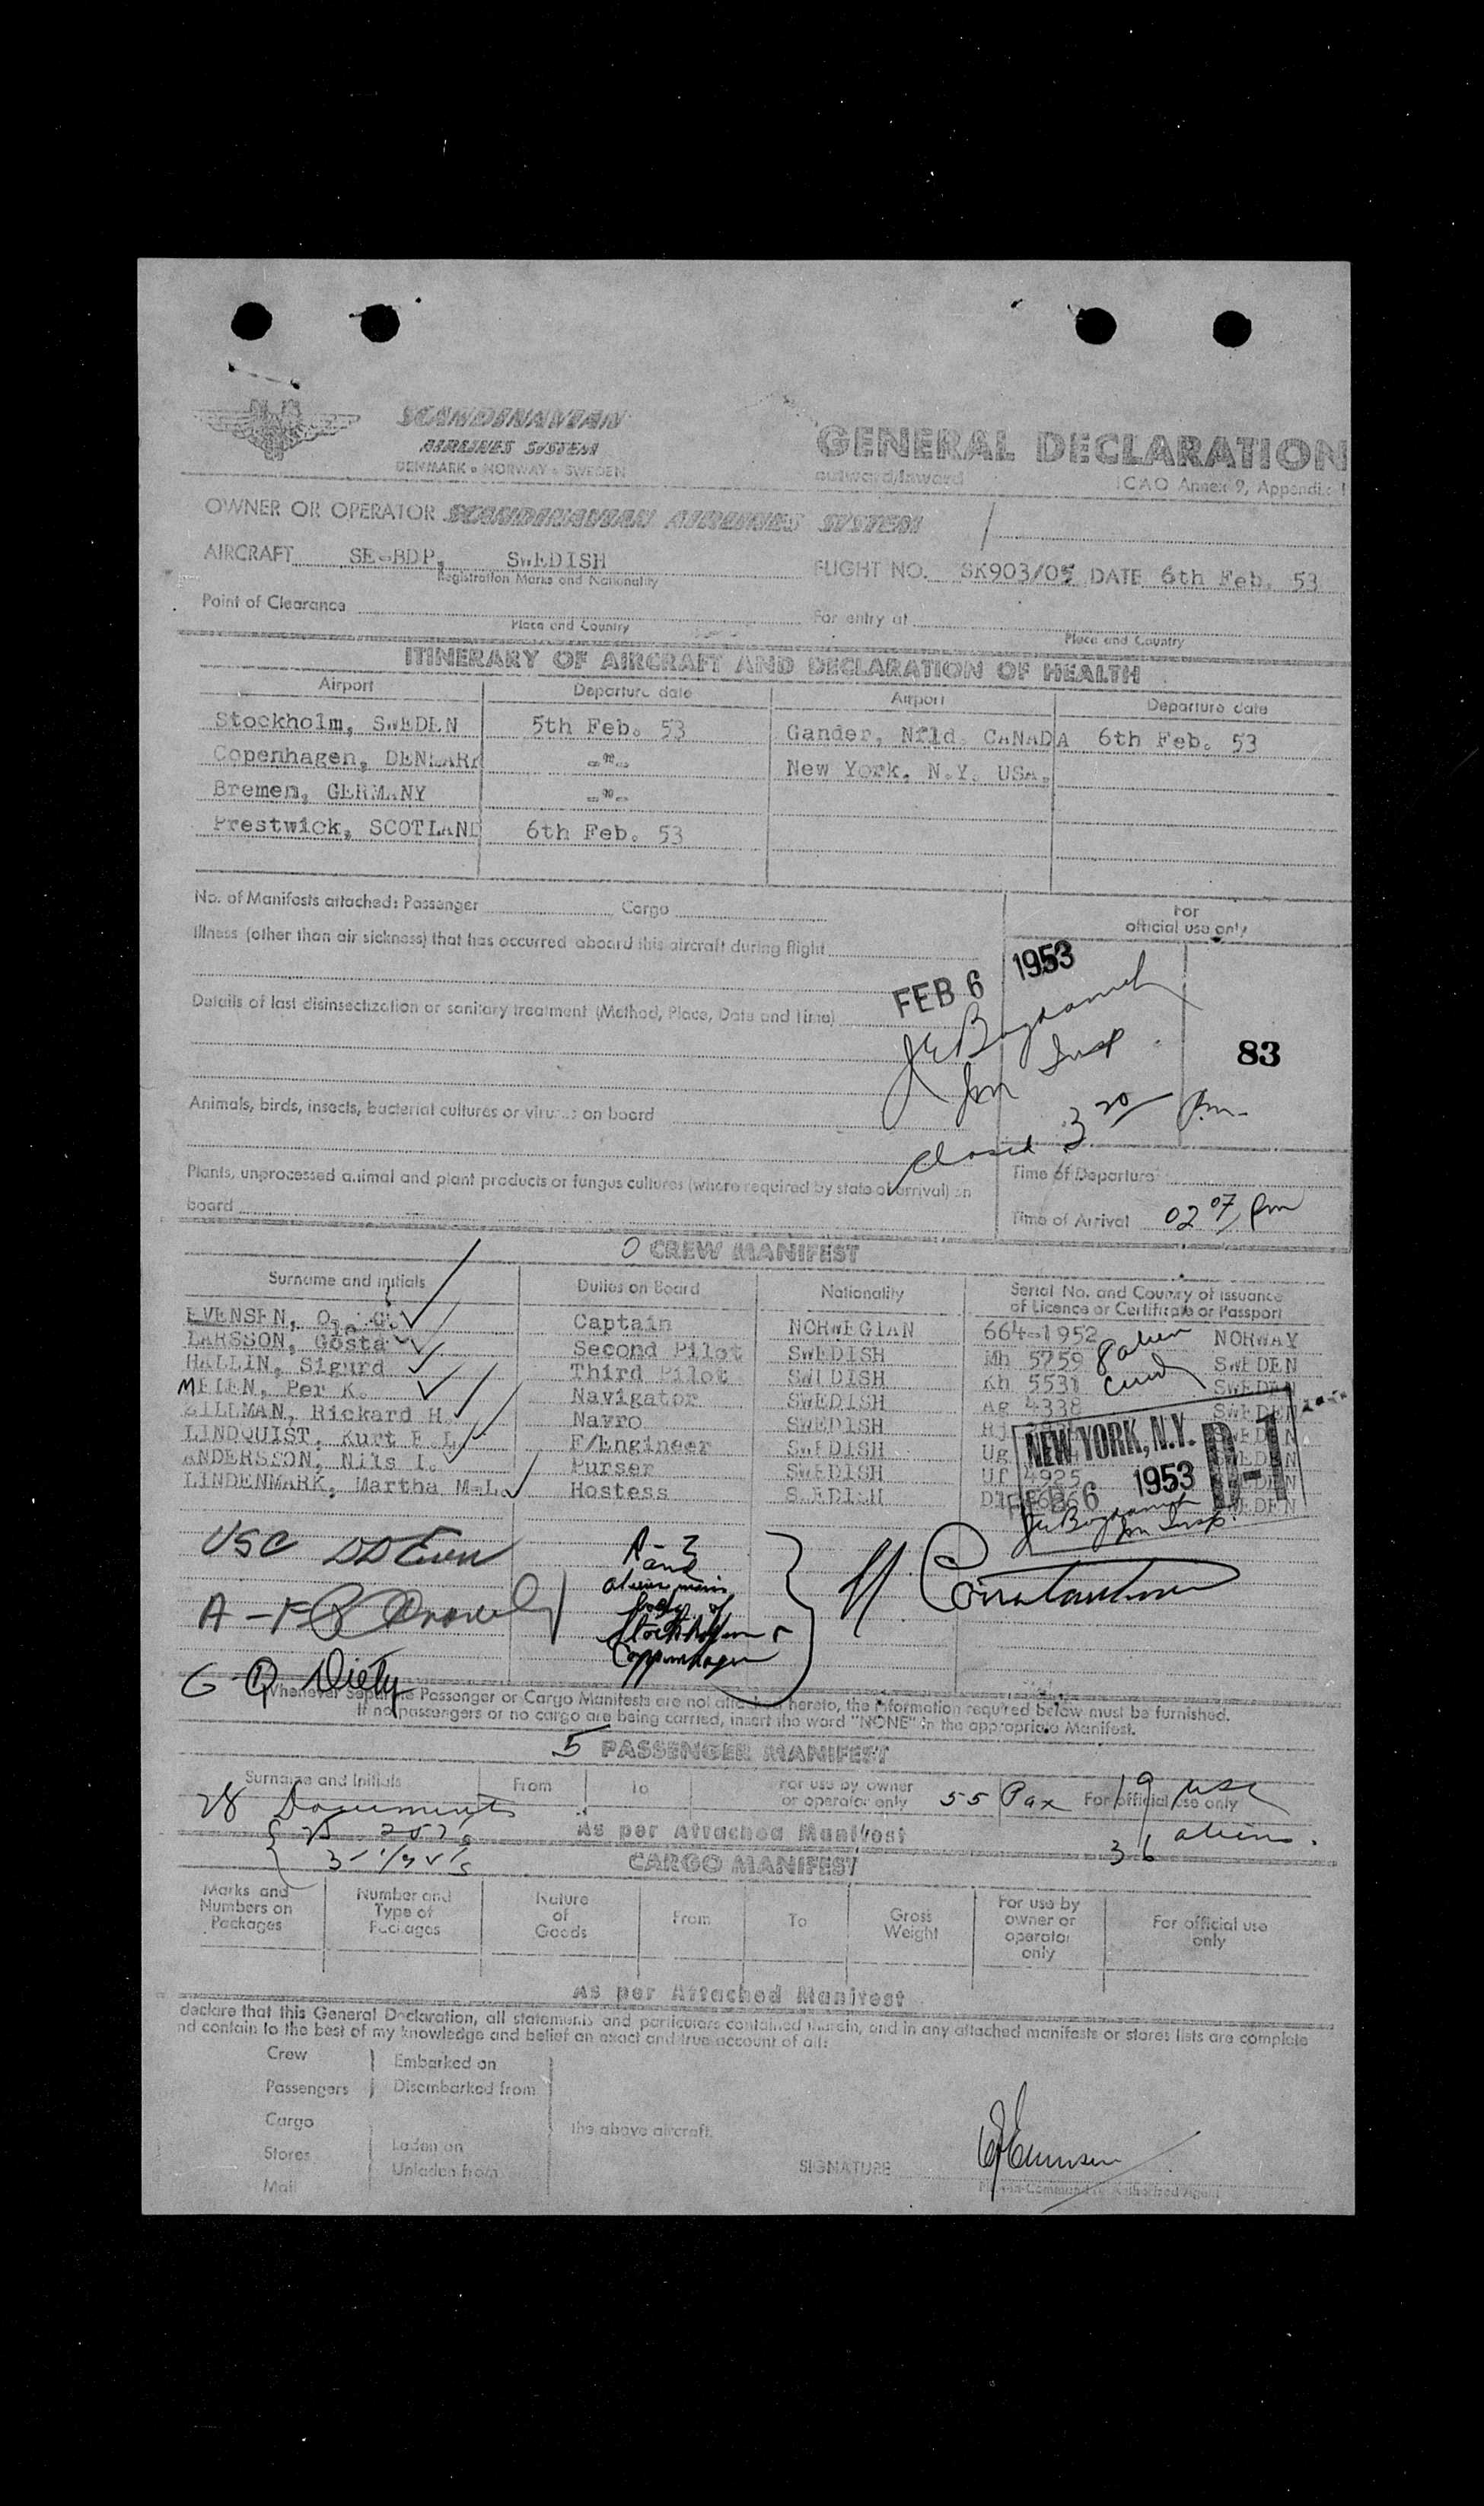 SCANDINAVIAN
AIRLINES SYSTEM
DENMARK • NORWAY • SWEDEN
GENERAL DECLARATION
outward/inward
ICAO Annex 9, Appendix 1
OWNER OR OPERATOR SCANDINAVIAN AIRLINES SYSTEM
AIRCRAFT SE-BDP, SWEDISH
Registration Marks and Nationality
FLIGHT NO. SK903/05 DATE 6th Feb. 53
Point of Clearance
Place and Country
For entry at
Place and Country
ITINERARY OF AIRCRAFT AND DECLARATION OF HEALTH
Airport Departure date Airport Departure date
Stockholm, SWEDEN 5th Feb. 53 Gander, Nfld. CANADA 6th Feb. 53
Copenhagen, DENMARK -"- New York, N.Y. USA.
Bremen, GERMANY -"-
Prestwick, SCOTLAND 6th Feb. 53
No. of Manifests attached: Passenger Cargo
For
official use only
Illness (other than air sickness) that has occurred aboard this aircraft during flight
FEB 6 1953
Details of last disinsectization or sanitary treatment (Method, Place, Date and Time)
Insp
83
Animals, birds, insects, bacterial cultures or viruses on board
closed 3 20 Pm
Plants, unprocessed animal and plant products or fungus cultures (where required by state of arrival) on
board
Time of Departure
Time of Arrival 02 07 Pm
0 CREW MANIFEST
Surname and initials Duties on Board Nationality Serial No. and Country of issuance
of Licence or Certificate or Passport
EVENSEN, O. Captain NORWEGIAN 664-1952 NORWAY
LARSSON, Gösta Second Pilot SWEDISH Mh 5759 SWEDEN
HALLIN, Sigurd Third Pilot SWEDISH Kh 5531 SWEDEN
MELEN, Per K. Navigator SWEDISH Ag 4338 SWEDEN
ZILLMAN, Rickard H. Navro SWEDISH SWEDEN
LINDQUIST, Kurt E.L. F/Engineer SWEDISH Ug SWEDEN
ANDERSSON, Nils I. Purser SWEDISH Uf 4925 SWEDEN
LINDENMARK, Martha M-L. Hostess SWEDISH SWEDEN
8 alien
crew
NEW YORK, N.Y. D-1
FEB 6 1953
USC
A-2
and
Stockholm &
Coppenhagen
Constantine
Whenever Separate Passenger or Cargo Manifests are not attached hereto, the information required below must be furnished.
If no passengers or no cargo are being carried, insert the word "NONE" in the appropriate Manifest.
5 PASSENGER MANIFEST
Surname and Initials From To For use by owner
or operator only 55 Pax For official use only
19 usc
28 Documents
As per Attached Manifest
36 aliens.
CARGO MANIFEST
Marks and
Numbers on
Packages
Number and
Type of
Packages
Nature
of
Goods
From
To
Gross
Weight
For use by
owner or
operator
only
For official use
only
As per Attached Manifest
declare that this General Declaration, all statements and particulars contained therein, and in any attached manifests or stores lists are complete
nd contain to the best of my knowledge and belief an exact and true account of all:
Crew Embarked on
Passengers Disembarked from
Cargo the above aircraft.
Stores Laden on
Unladen from
Mail
SIGNATURE